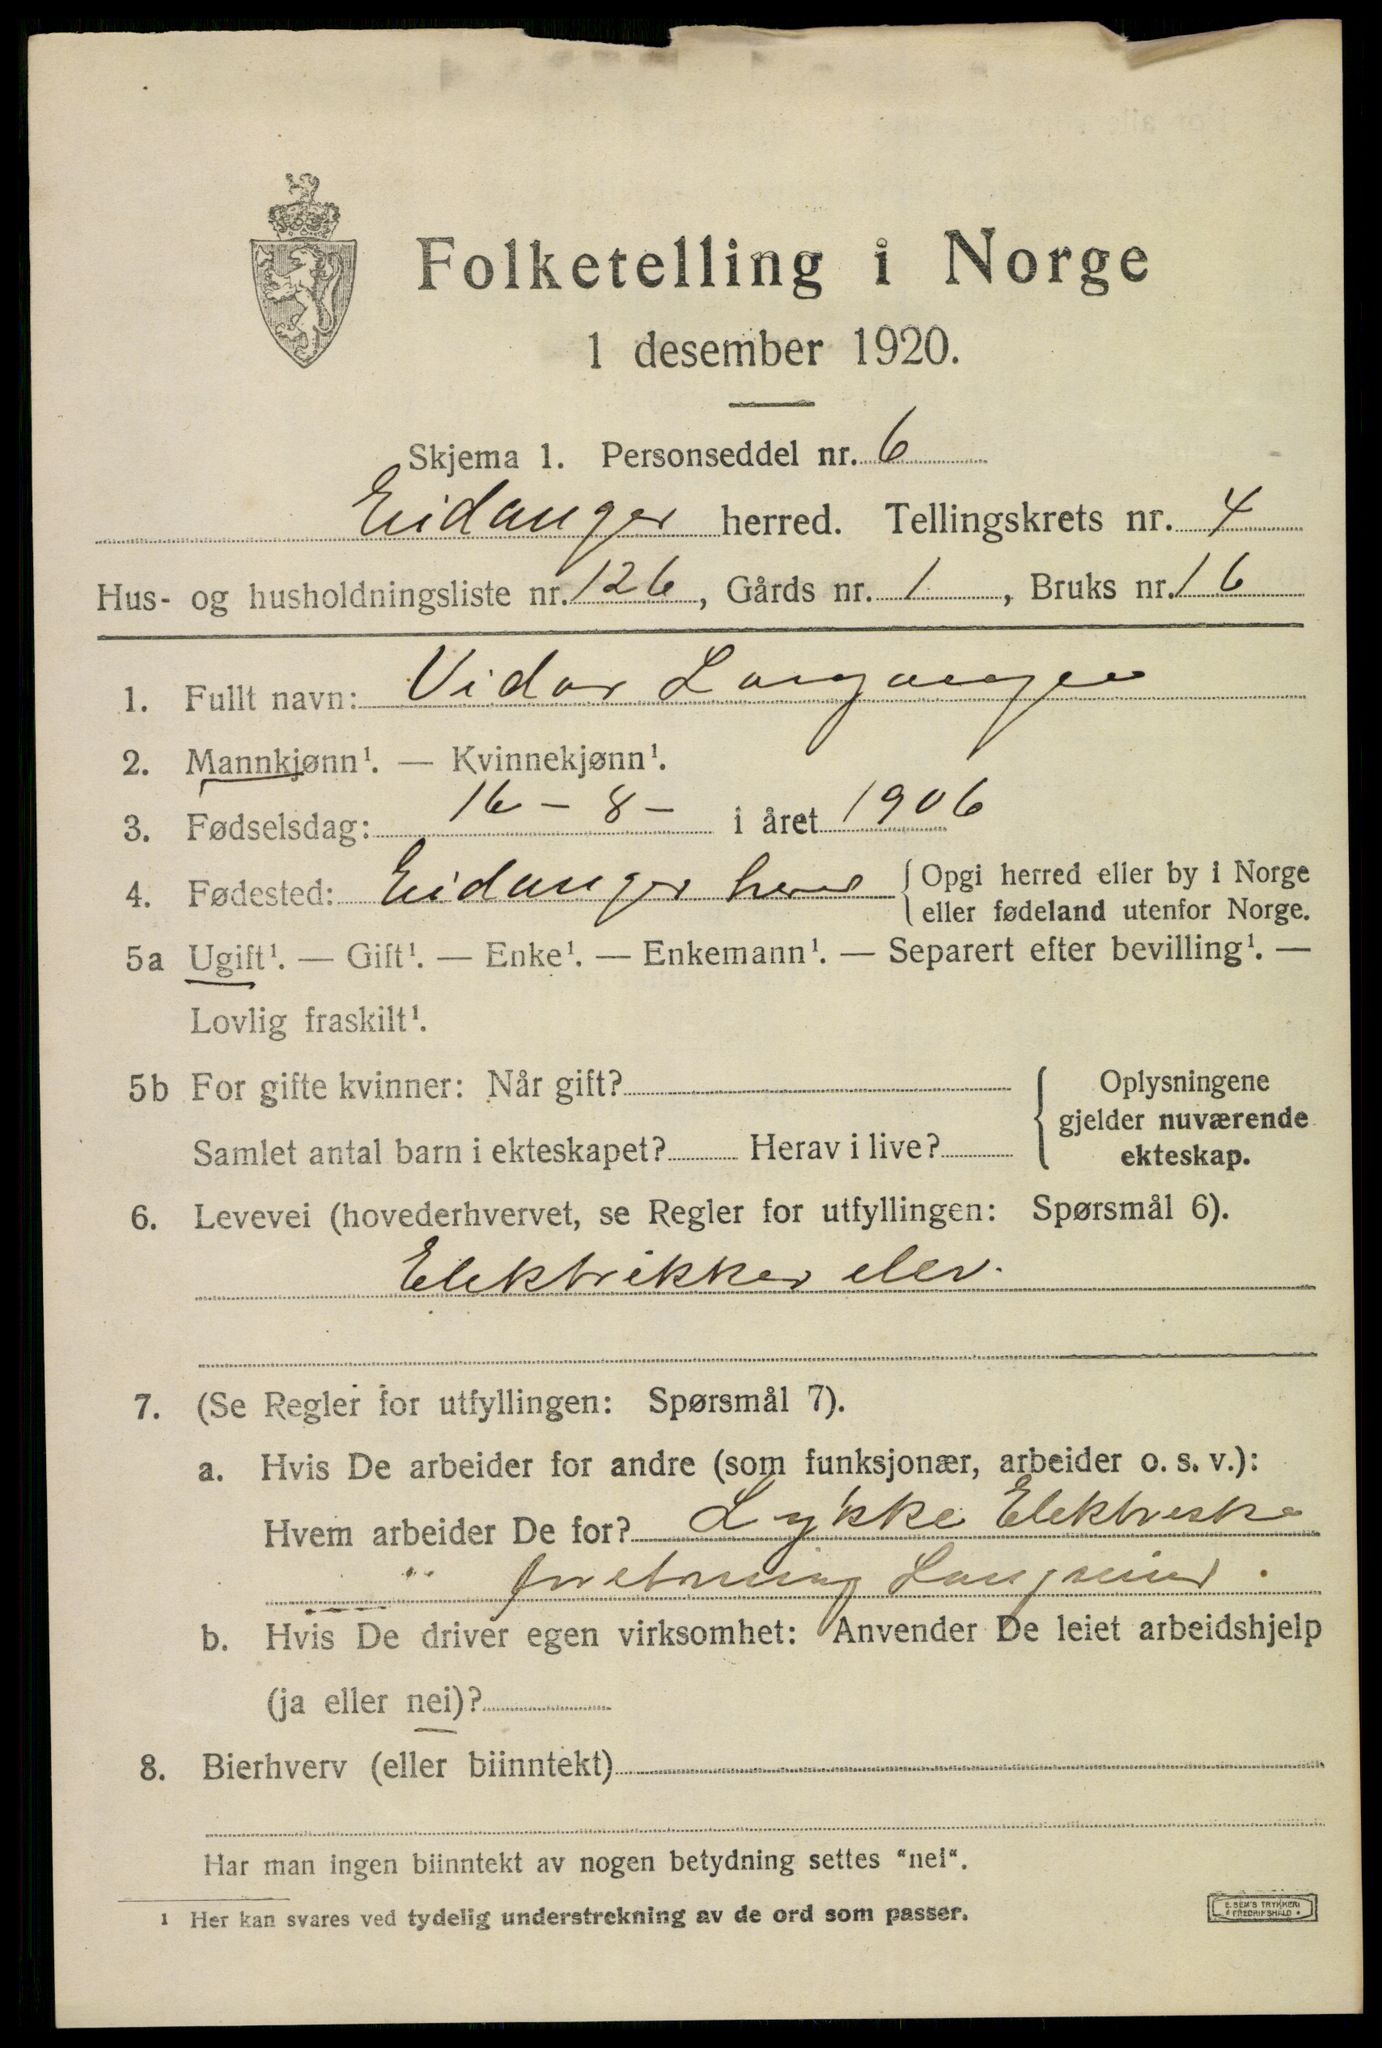 Folketelling i Norge
1 desember 1920.
Skjema 1. Personseddel nr. 6
Eidanger herred. Tellingskrets nr. 4
Hus- og husholdningsliste nr. 126, Gårds nr. 1, Bruks nr. 16
1. Fullt navn: Vidar Langangen
2. Mannkjønn¹. — Kvinnekjønn¹.
3. Fødselsdag: 16 – 8 – i året 1906
4. Fødested: Eidanger herred { Opgi herred eller by i Norge
eller fødeland utenfor Norge.
5a Ugift¹. — Gift¹. — Enke¹. — Enkemann¹. — Separert efter bevilling¹. —
Lovlig fraskilt¹.
5b For gifte kvinner: Når gift?
Samlet antal barn i ekteskapet? Herav i live?
{ Oplysningene
gjelder nuværende
ekteskap.
6. Levevei (hovederhvervet, se Regler for utfyllingen: Spørsmål 6).
Elektrikker elev.
7. (Se Regler for utfyllingen: Spørsmål 7).
a. Hvis De arbeider for andre (som funksjonær, arbeider o. s. v.):
Hvem arbeider De for? Lykke Elektriske
forretning
b. Hvis De driver egen virksomhet: Anvender De leiet arbeidshjelp
(ja eller nei)?
8. Bierhverv (eller biinntekt)
Har man ingen biinntekt av nogen betydning settes "nei".
¹ Her kan svares ved tydelig understrekning av de ord som passer.
E. SEM'S TRYKKERI
FREDRIKSHALD